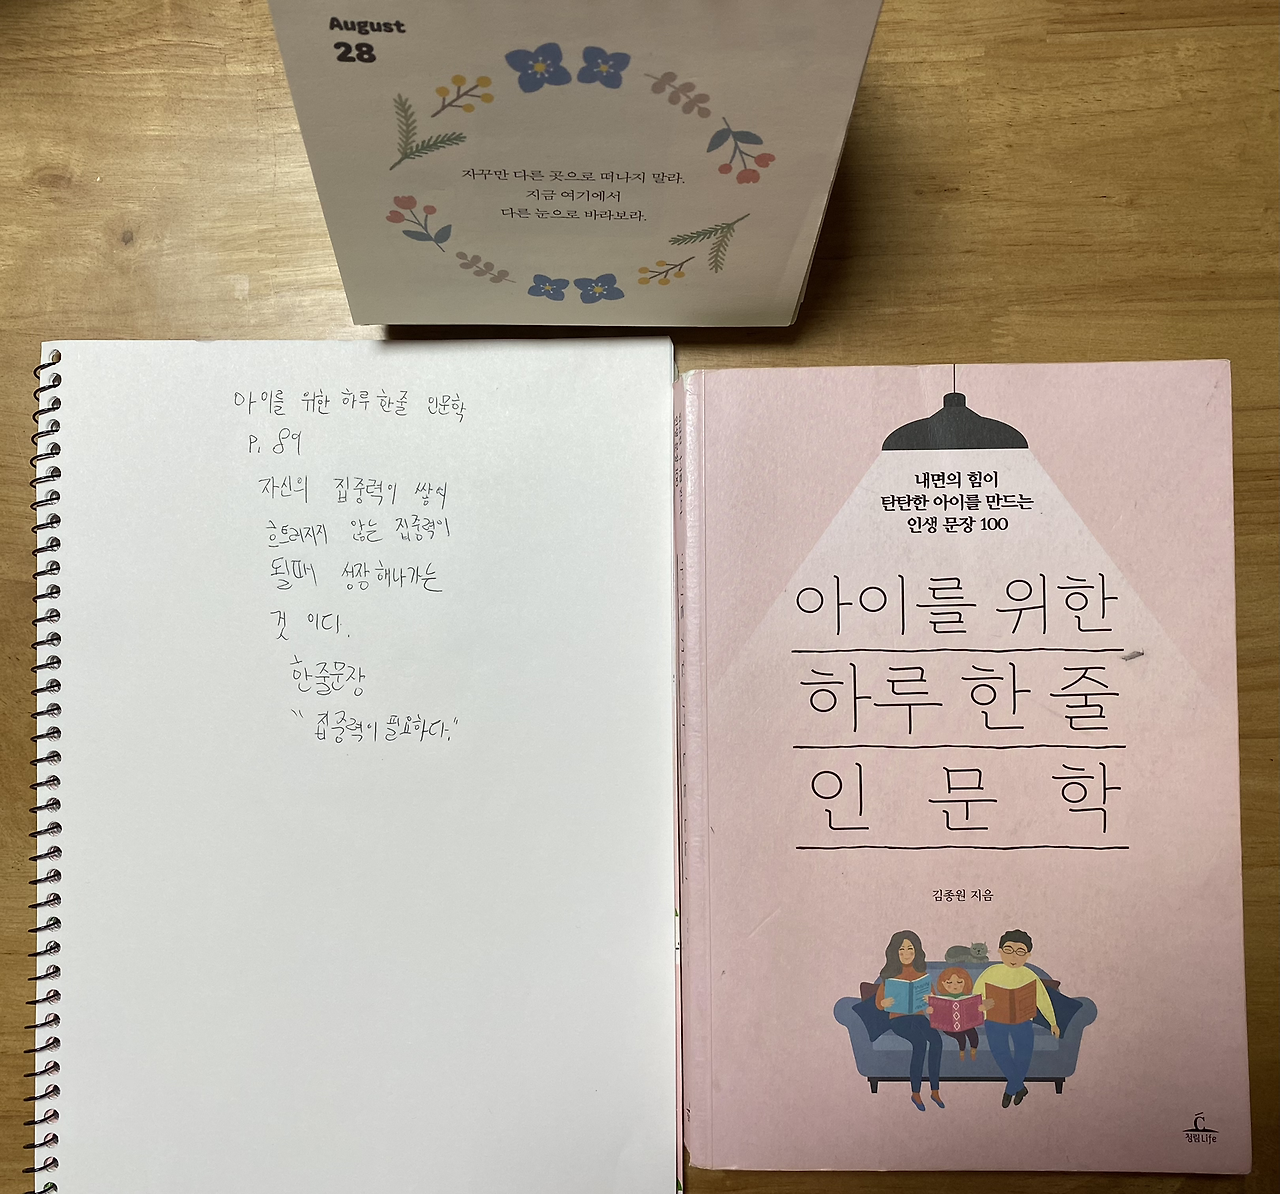 August
28
자꾸만 다른 곳으로 떠나지 말라.
지금 여기에서
다른 눈으로 바라보라.
아이를 위한 하루 한줄 인문학
P. 89
자신의 집중력이 쌓여
흐트러지지 않는 집중력이
될때 성장해나가는
것 이다.
한줄문장
"집중력이 필요하다."
내면의 힘이
탄탄한 아이를 만드는
인생 문장 100
아이를 위한
하루 한 줄
인 문 학
김종원 지음
청림Life